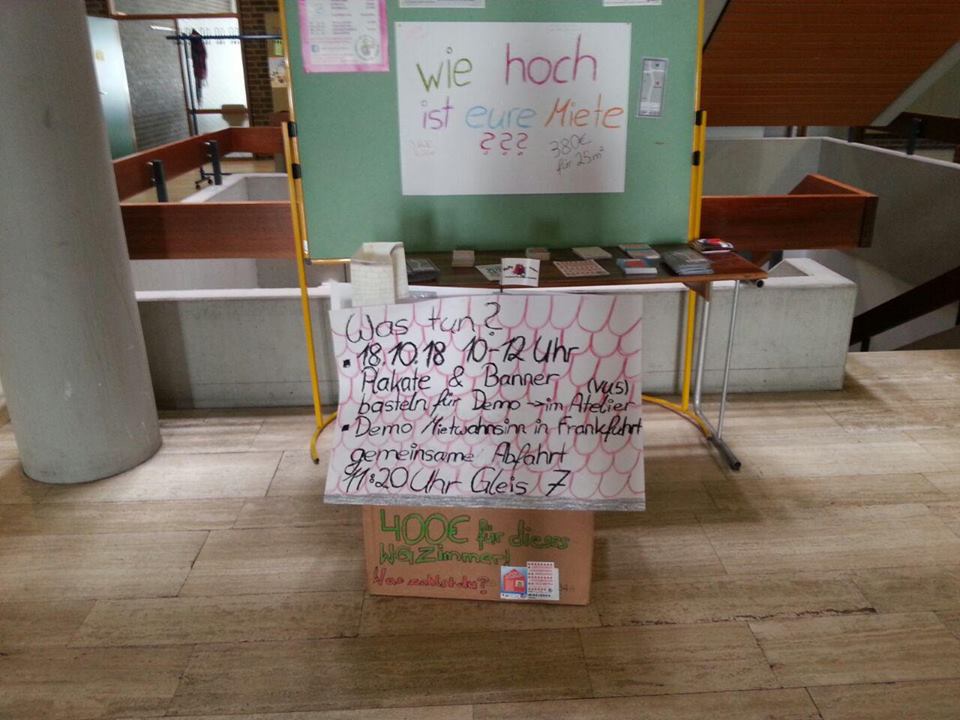 wie hoch
ist eure Miete
???
380€
für 25m²
Was tun?
18.10.18 10-12 Uhr
Plakate & Banner (V45)
basteln für Demo → im Atelier
Demo Mietwahnsinn in Frankfurt
gemeinsame Abfahrt
11:20 Uhr Gleis 7
400€ für dieses
WG Zimmer!
Was zahlst du?